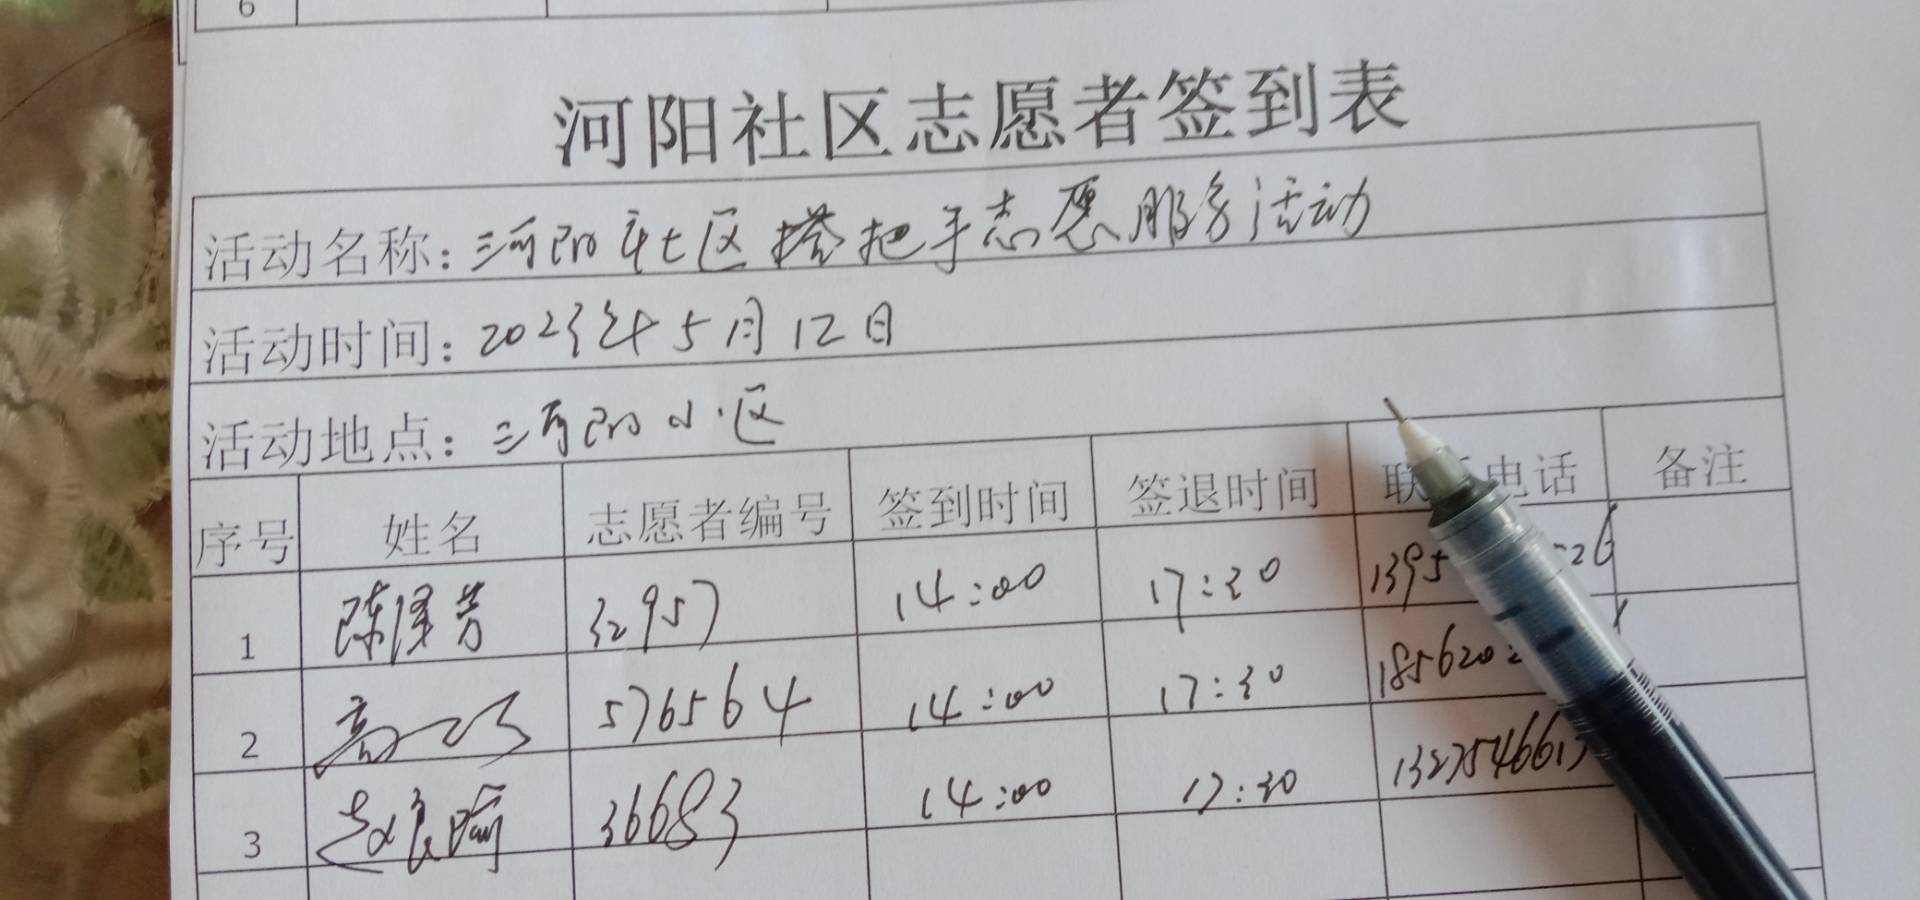 6
河阳社区志愿者签到表
活动名称：河阳社区搭把手志愿服务活动
活动时间：2023年5月12日
活动地点：河阳小区
序号 姓名 志愿者编号 签到时间 签退时间 联 电话 备注
1 陈泽芳 32957 14:00 17:30 1395 26
2 高 576564 14:00 17:30 1856202
3 赵良 36683 14:00 17:30 1327546615